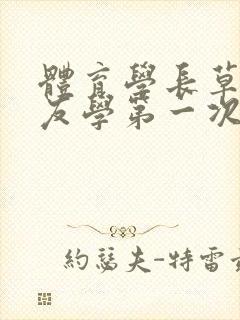 體育學長草
友學第一次
約瑟夫-特雷